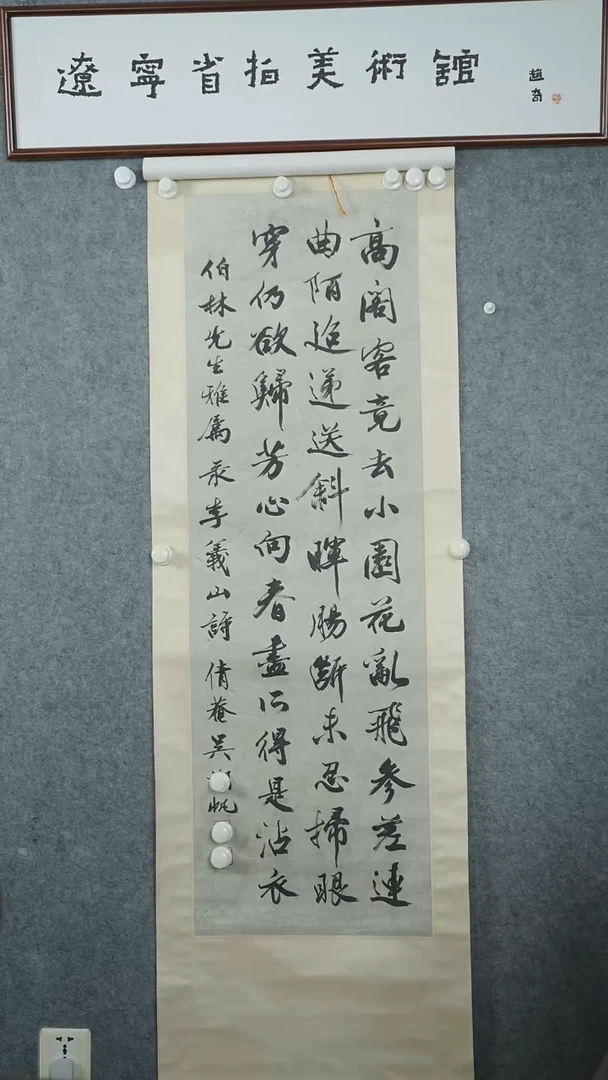 遼寧省拍美術館
趙奇
高閣客竟去小園花亂飛參差連
曲陌迢遞送斜暉腸斷未忍掃眼
穿仍欲歸芳心向春盡所得是沾衣
伯林先生雅屬 录李義山詩 倩菴吳 帆